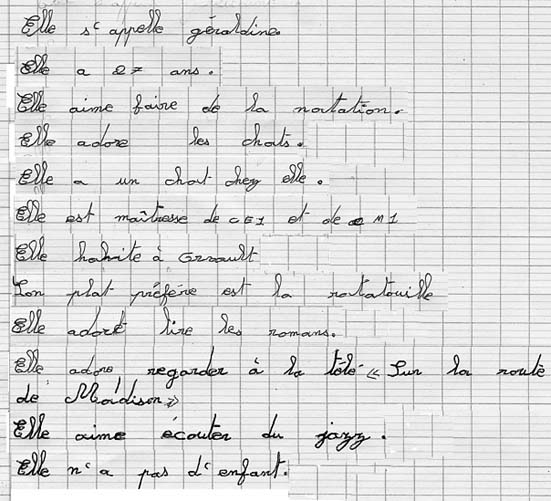 Elle s'appelle géraldine.
Elle a 27 ans.
Elle aime faire de la natation.
Elle adore les chats.
Elle a un chat chez elle.
Elle est maîtresse de CE1 et de CM1
Elle habite à
Son plat préféré est la ratatouille
Elle adore lire les romans.
Elle adore regarder à la télé « Sur la route
de Madison »
Elle aime écouter du jazz.
Elle n'a pas d'enfant.